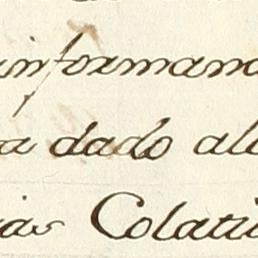 informand
a dado al
ias Colati